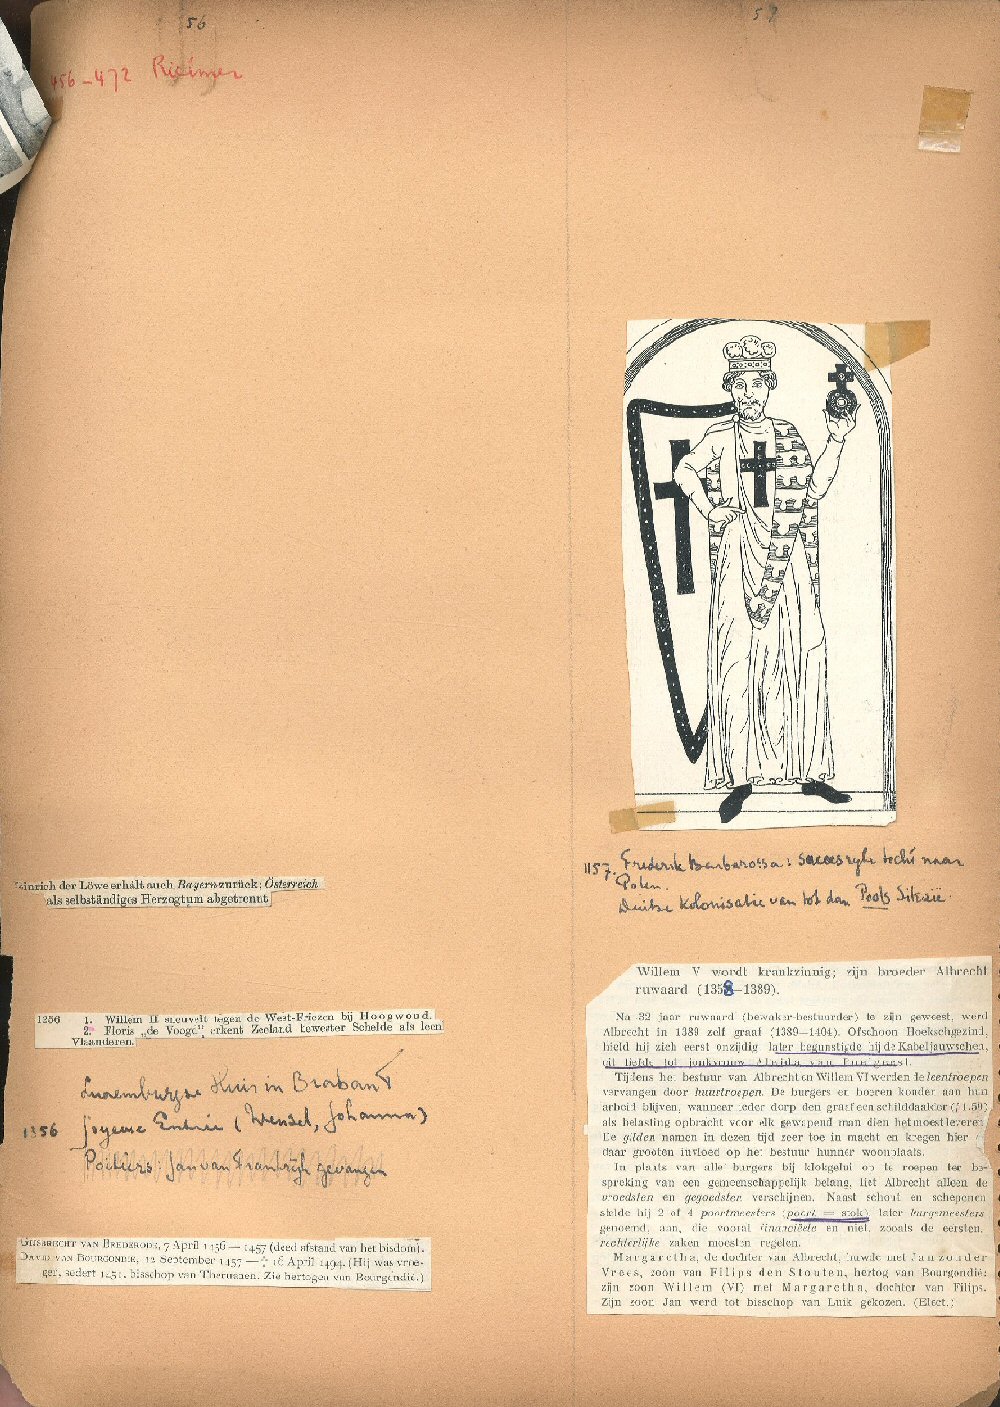 56
456-472 Ricimer
inrich der Löwe erhält auch Bayern zurück; Österreich
als selbständiges Herzogtum abgetrennt
1256 1. Willem II sneuvelt tegen de West-Friezen bij Hoogwoud.
2. Floris „de Voogd" erkent Zeeland bewester Schelde als leen
Vlaanderen.
Luxemburgse Huis in Brabant
1356 Joyeuse Entrée (Wensel, Johanna)
Poitiers: Jan van Frankrijk gevangen
GIJSBRECHT VAN BREDERODE, 7 April 1456 — 1457 (deed afstand van het bisdom).
DAVID VAN BOURGONDIE, 12 September 1457 — † 16 April 1494. (Hij was vroe-
ger, sedert 1451, bisschop van Therouanen. Zie hertogen van Bourgondië.)
57
1157. Frederik Barbarossa: succesrijke tocht naar
Polen.
Duitse kolonisatie van tot dan Pools Silezië.
Willem V wordt krankzinnig; zijn broeder Albrecht
ruwaard (1358—1389).
Na 32 jaar ruwaard (bewaker-bestuurder) te zijn geweest, werd
Albrecht in 1389 zelf graaf (1389—1404). Ofschoon Hoekschgezind,
hield hij zich eerst onzijdig, later begunstigde hij de Kabeljauwschen,
uit liefde tot jonkvrouw Aleida van Poelgeest.
Tijdens het bestuur van Albrecht en Willem VI werden de leentroepen
vervangen door huurtroepen. De burgers en boeren konden aan hun
arbeid blijven, wanneer ieder dorp den graaf een schilddaalder (ƒ 1.50)
als belasting opbracht voor elk gewapend man dien het moest leveren.
De gilden namen in dezen tijd zeer toe in macht en kregen hier en
daar grooten invloed op het bestuur hunner woonplaats.
In plaats van alle burgers bij klokgelui op te roepen ter be-
spreking van een gemeenschappelijk belang, liet Albrecht alleen de
vroedsten en gegoedsten verschijnen. Naast schout en schepenen
stelde hij 2 of 4 poortmeesters (poort = stad), later burgemeesters
genoemd, aan, die vooral financiëele en niet, zooals de eersten,
rechterlijke zaken moesten regelen.
Margaretha, de dochter van Albrecht, huwde met Jan zonder
Vrees, zoon van Filips den Stouten, hertog van Bourgondië;
zijn zoon Willem (VI) met Margaretha, dochter van Filips.
Zijn zoon Jan werd tot bisschop van Luik gekozen. (Elect.)